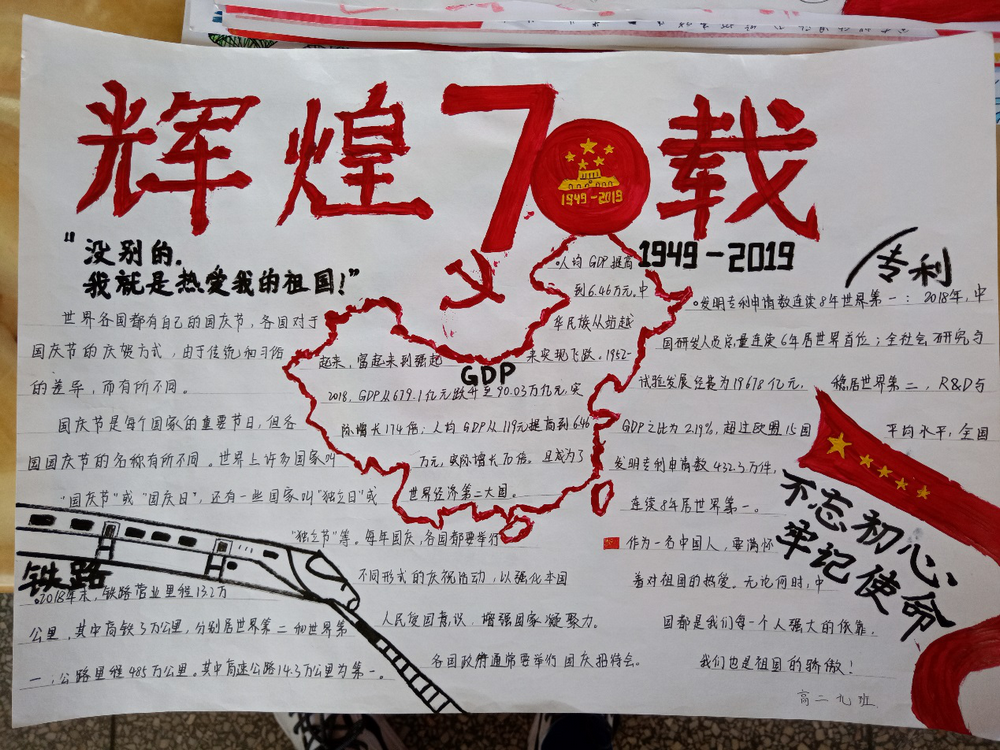 辉煌70载
1949-2019
1949-2019
"没别的.
我就是热爱我的祖国!"
世界各国都有自己的国庆节,各国对于
国庆节的庆贺方式,由于传统和习俗
的差异,而有所不同。
国庆节是每个国家的重要节日,但各
国国庆节的名称有所不同。世界上许多国家叫
"国庆节"或"国庆日",还有一些国家叫"独立日"或
"独立节"等。每年国庆,各国都要举行
不同形式的庆祝活动,以强化本国
人民爱国意识,增强国家凝聚力。
各国政府通常要举行国庆招待会。
铁路
。2018年末,铁路营业里程13.2万
公里,其中高铁3万公里,分别居世界第二和世界第
一,公路里程485万公里。其中高速公路14.3万公里为第一。
GDP
。人均GDP提高
到6.46万元,中
华民族从站起
起来,富起来到强起
来实现飞跃。1952-
2018,GDP从679.1亿元跃升至90.03万亿元,实
际增长174倍;人均GDP从119元提高到6.46
万元,实际增长70倍。且成为了
世界经济第二大国。
专利
。发明专利申请数连续8年世界第一:2018年,中
国研发人员总量连续6年居世界首位;全社会研究与
试验发展经费为19678亿元,稳居世界第二,R&D与
GDP之比为2.19%,超过欧盟15国平均水平,全国
发明专利申请数432.3万件,
连续8年居世界第一。
作为一名中国人,要满怀
着对祖国的热爱。无论何时,中
国都是我们每一个人强大的依靠,
我们也是祖国的骄傲!
不忘初心
牢记使命
高二九班